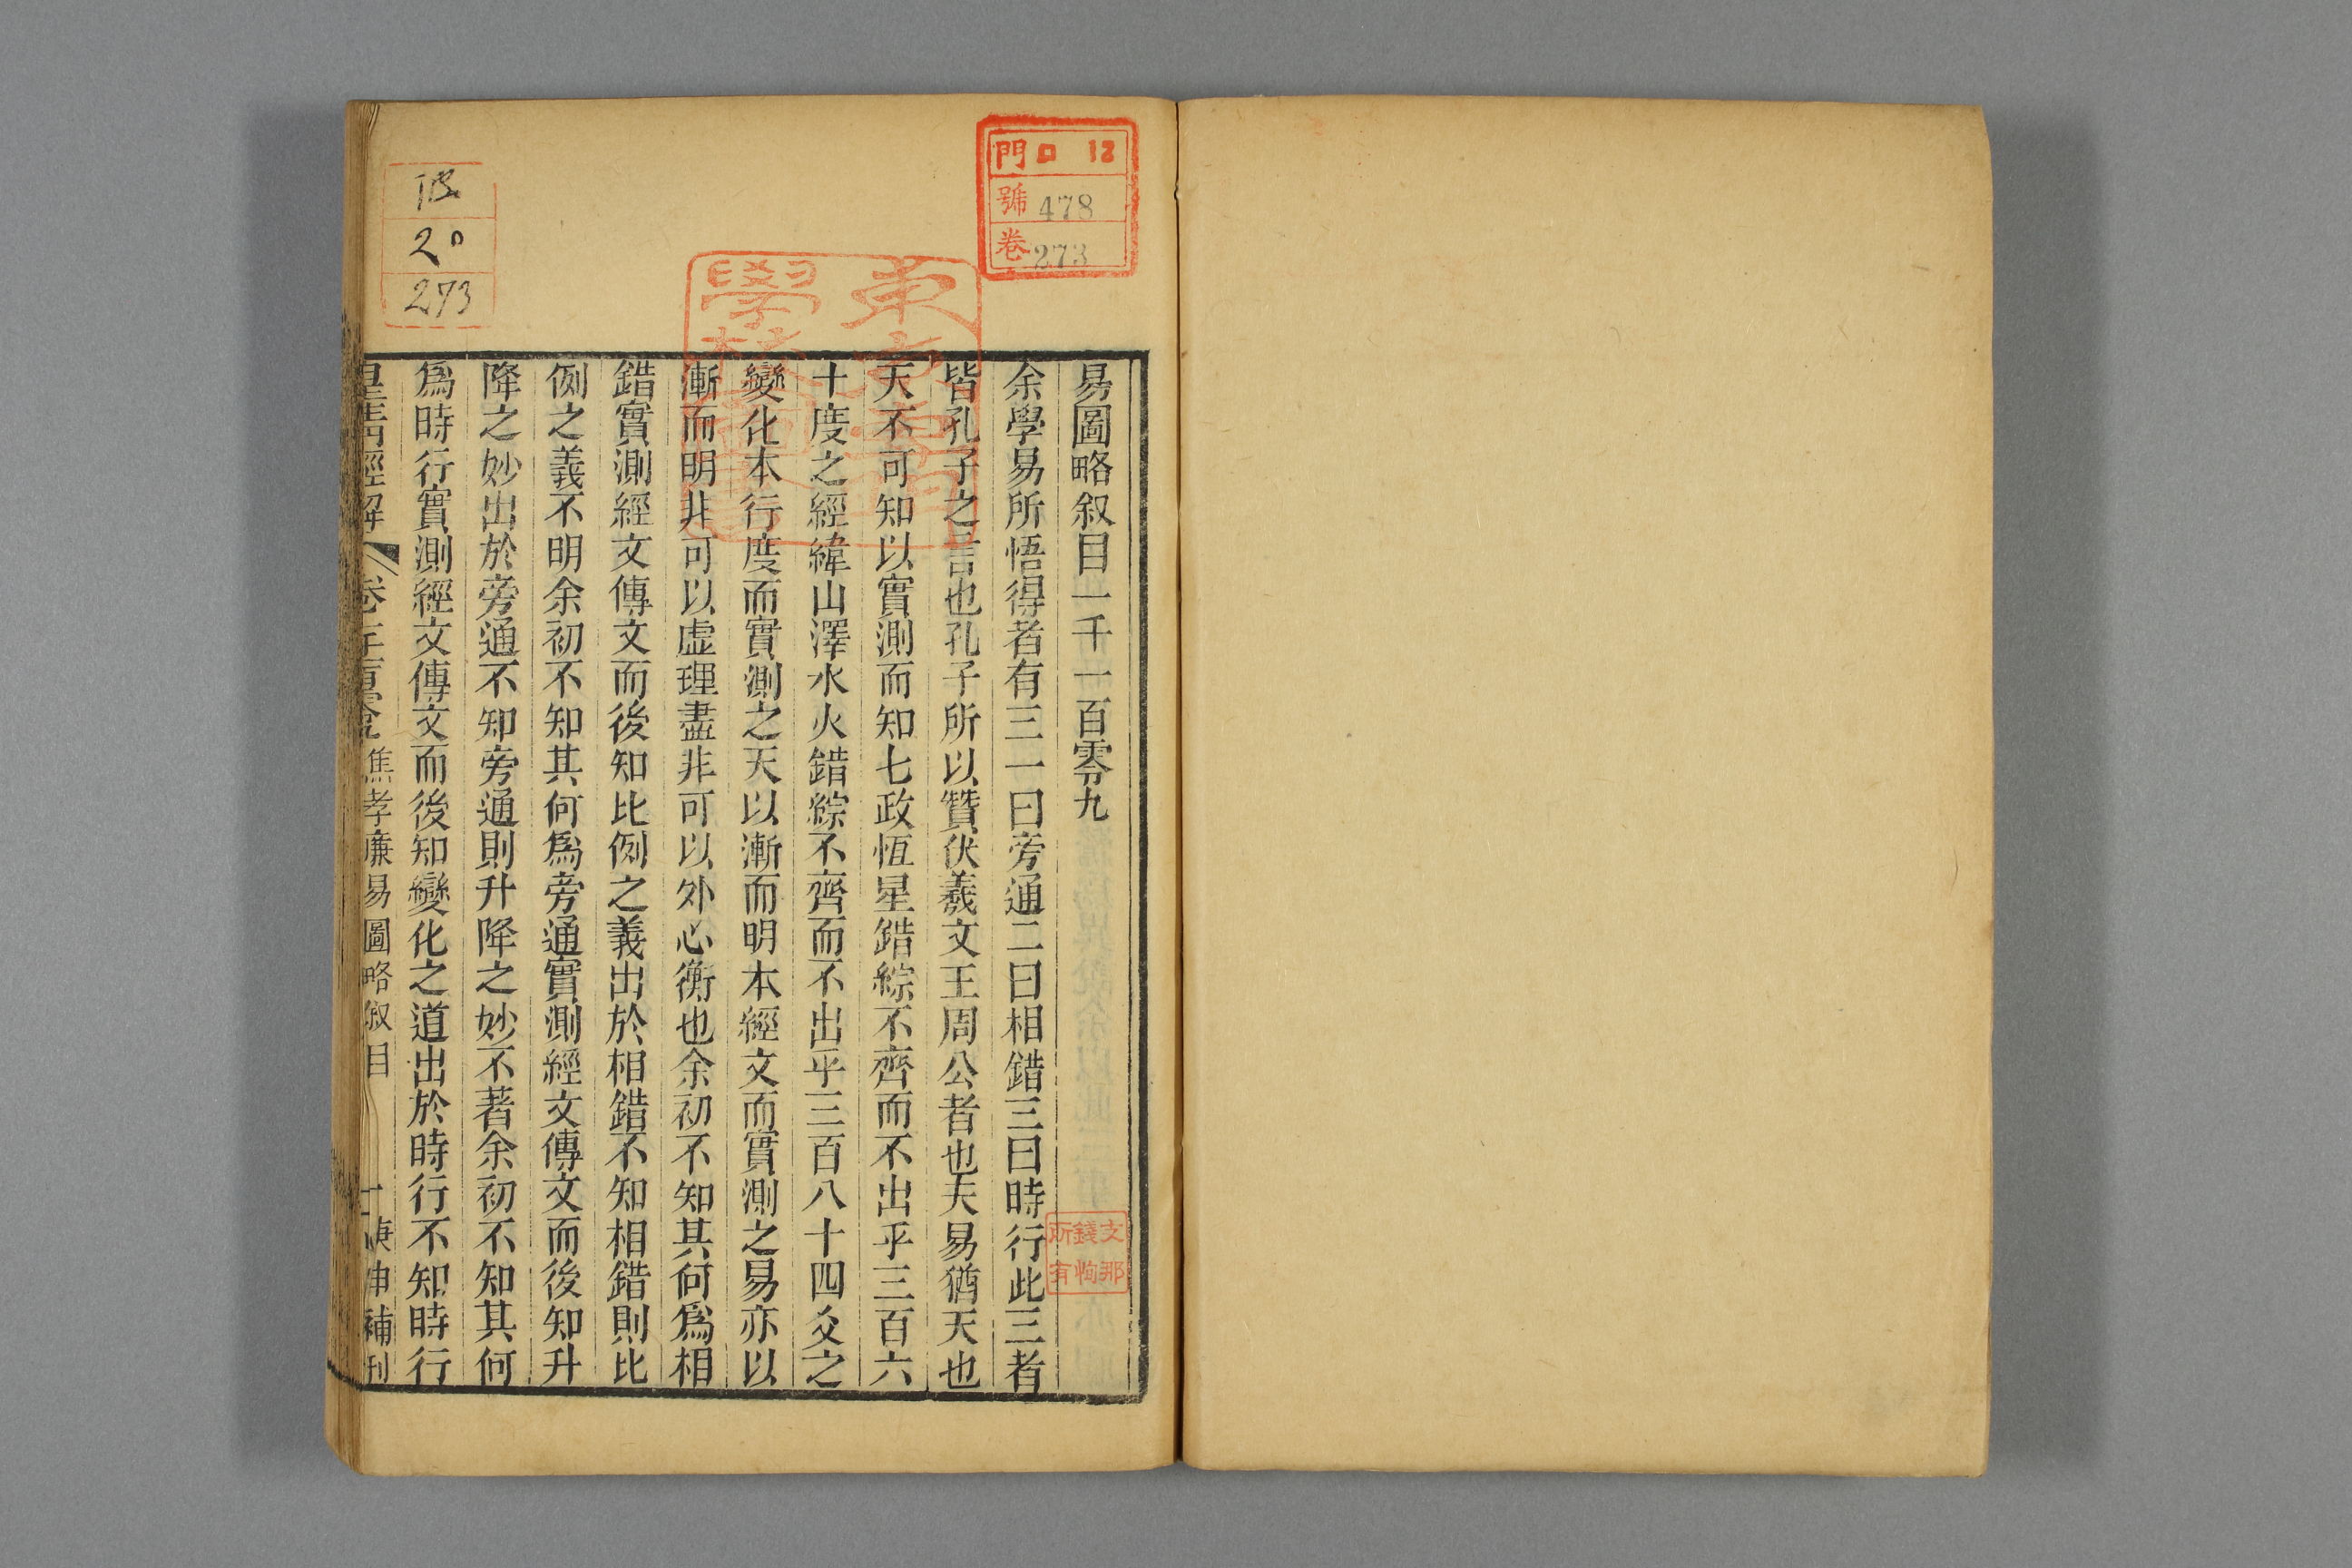 門 ロ 12
號 478
卷 273
易圖略叙目一千一百零九
余學易所悟得者有三一曰旁通二曰相錯三曰時行此三者
皆孔子之言也孔子所以贊伏羲文王周公者也夫易猶天也
天不可知以實測而知七政恆星錯綜不齊而不出乎三百六
十度之經緯山澤水火錯綜不齊而不出乎三百八十四爻之
變化本行度而實測之天以漸而明本經文而實測之易亦以
漸而明非可以虛理盡非可以外心衡也余初不知其何爲相
錯實測經文傳文而後知比例之義出於相錯不知相錯則比
例之義不明余初不知其何爲旁通實測經文傳文而後知升
降之妙出於旁通不知旁通則升降之妙不著余初不知其何
爲時行實測經文傳文而後知變化之道出於時行不知時行
皇清經解 卷 焦孝廉易圖略叙目 一 庚申補刊
20
273
文那
錢恂
所有